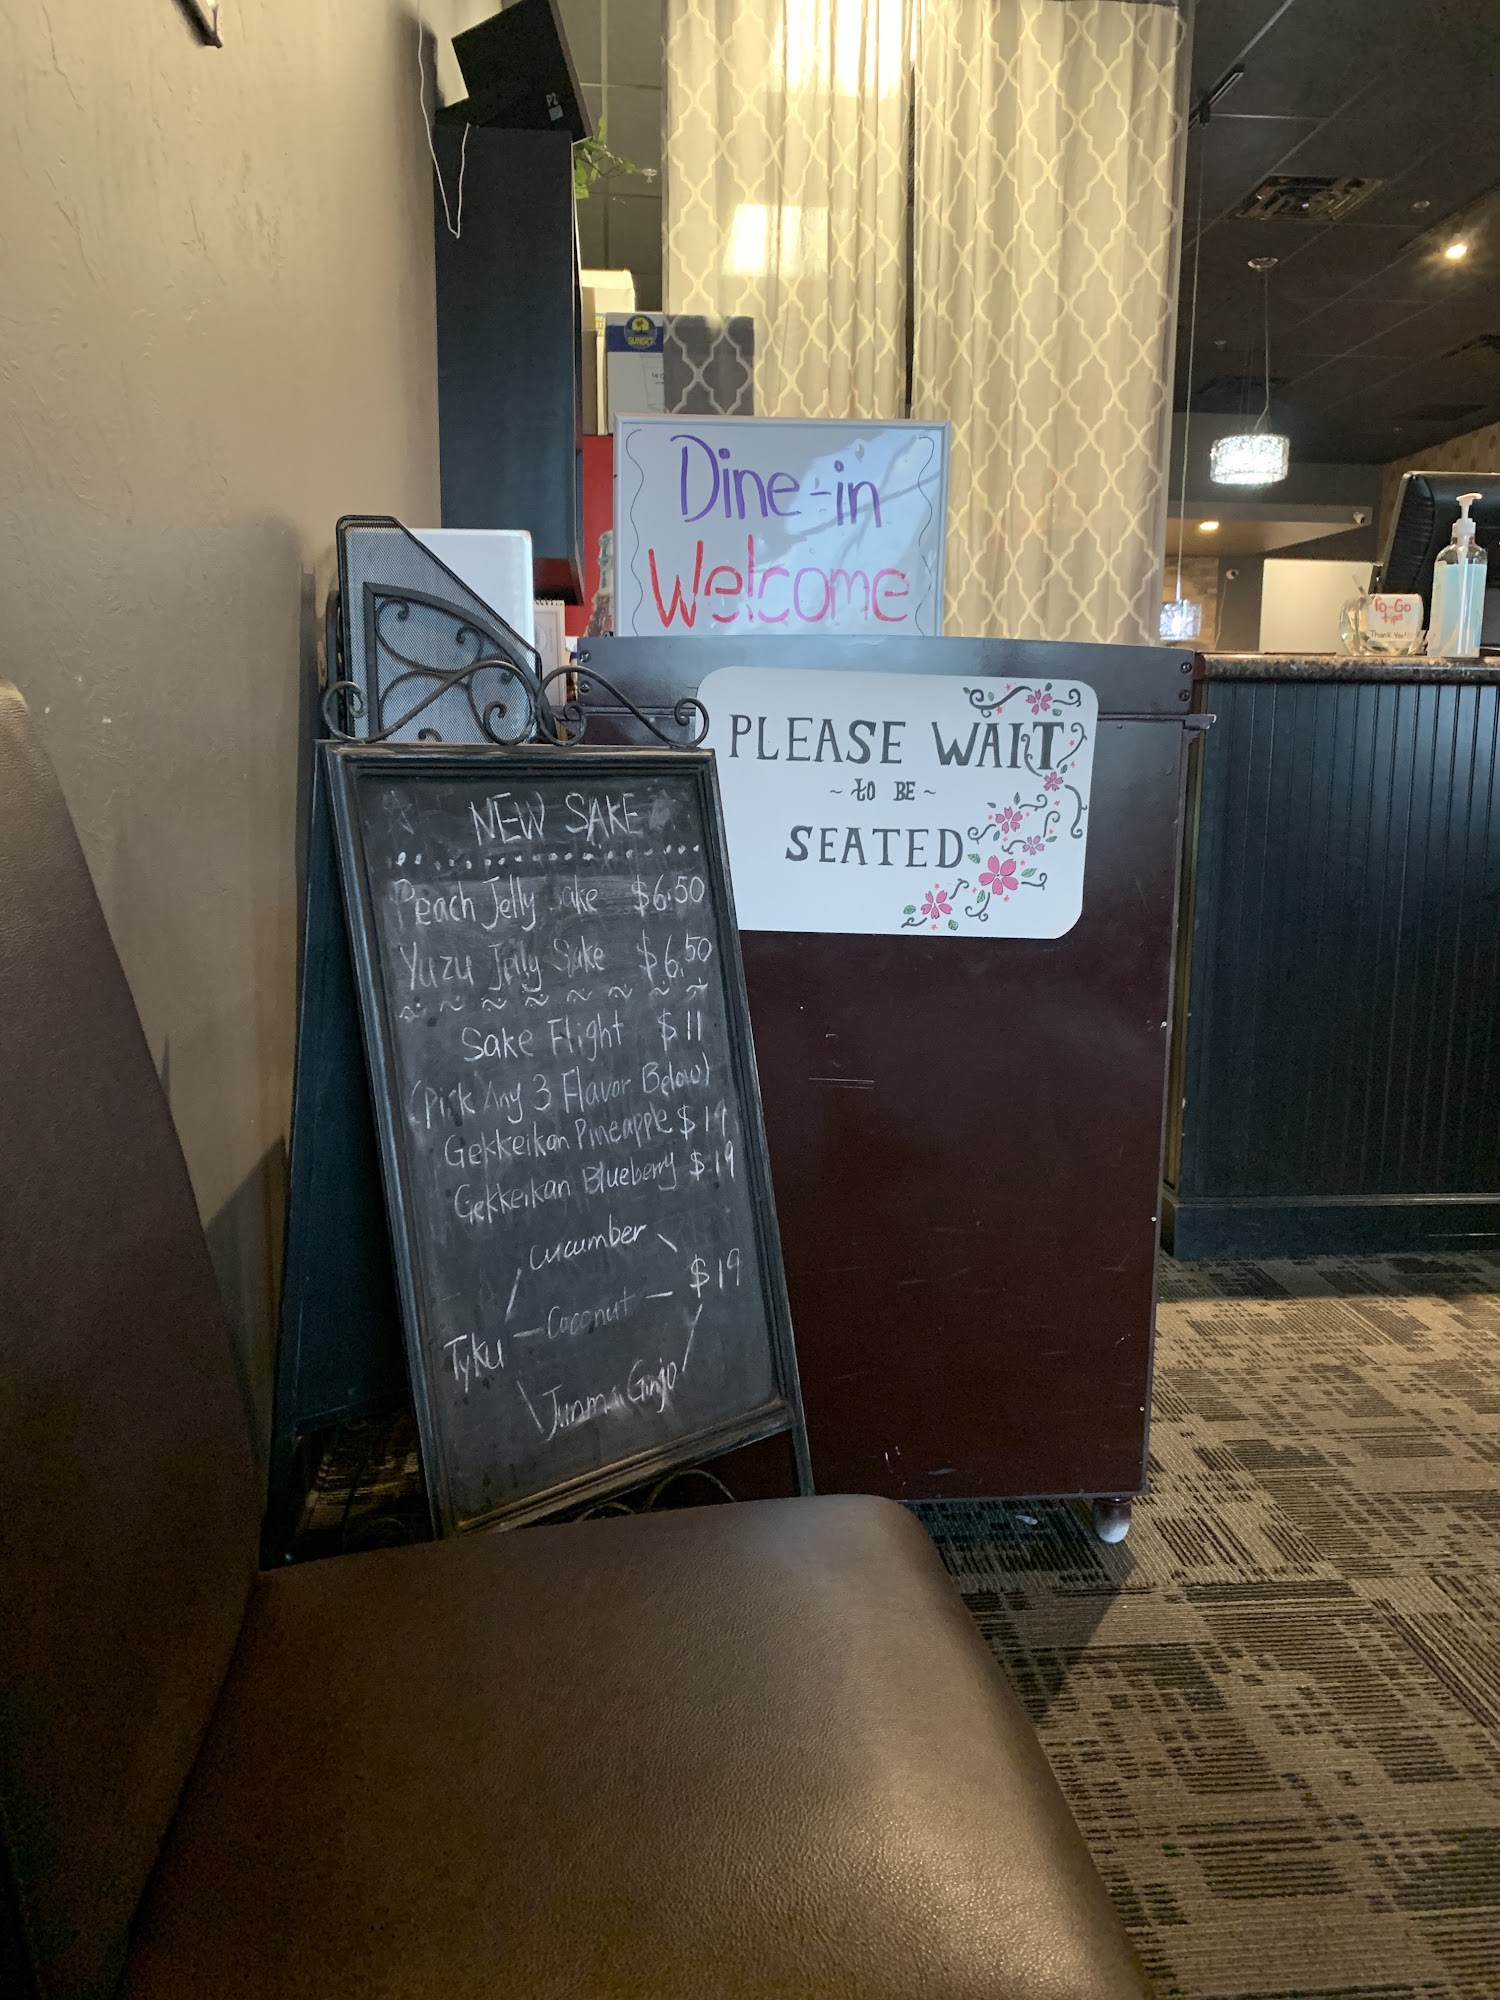 Dine-in
Welcome
PLEASE WAIT
~ to BE ~
SEATED
NEW SAKE
Peach Jelly Sake $6.50
Yuzu Jelly Sake $6.50
Sake Flight $11
(Pick Any 3 Flavor Below)
Gekkeikan Pineapple $19
Gekkeikan Blueberry $19
cucumber
Tyku Coconut $19
Junmai Ginjo
SUNSET
To-Go
tips
Thank You!